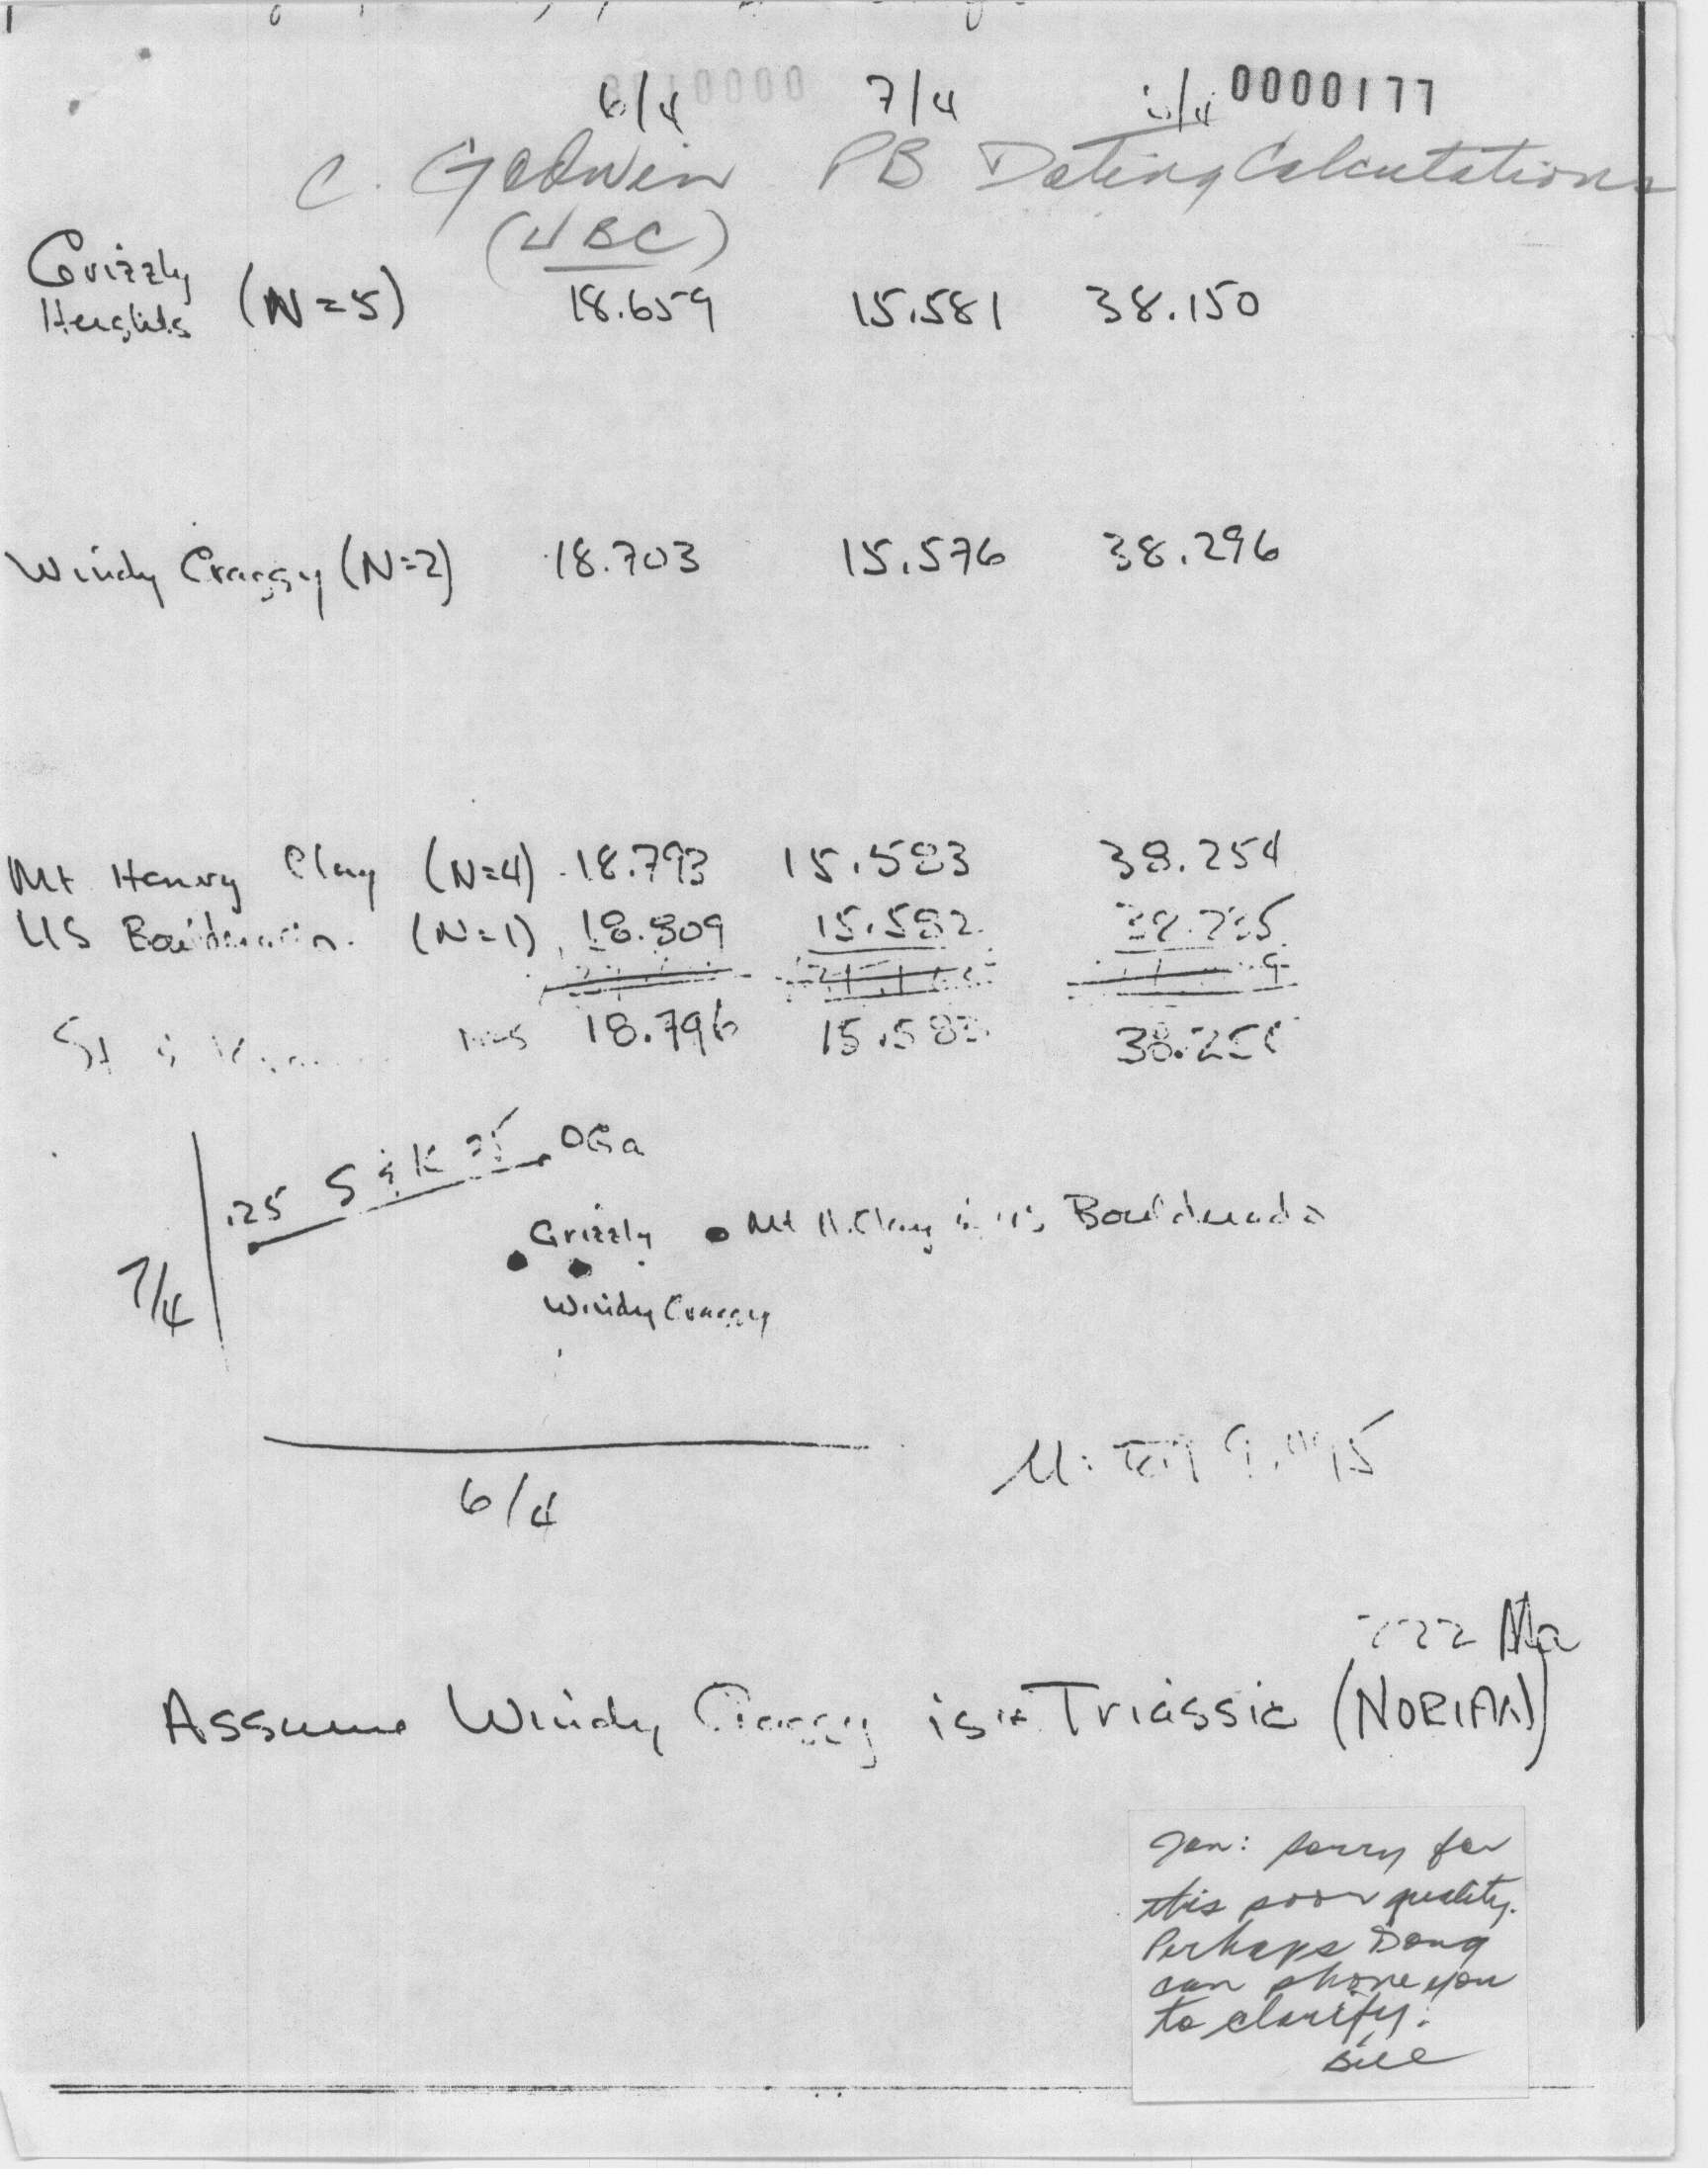 6/4 7/4 0000177
C. Godwin PB Dating Calculations
(UBC)
Grizzly
Heights (N=5) 18.659 15.581 38.150
Windy Craggy (N=2) 18.703 15.576 38.296
Mt Henry Clay (N=4) 18.793 15.583 38.254
US (N=1) 18.809 15.582
18.796 15.583
.25 S & K 0Ga
Grizzly Mt H. Clay
7/4
Windy Craggy
6/4
Ma
Assume Windy Craggy is Triassic (NORIAN)
Jan: sorry for
this poor quality.
Perhaps Doug
can phone you
to clarify.
Bill